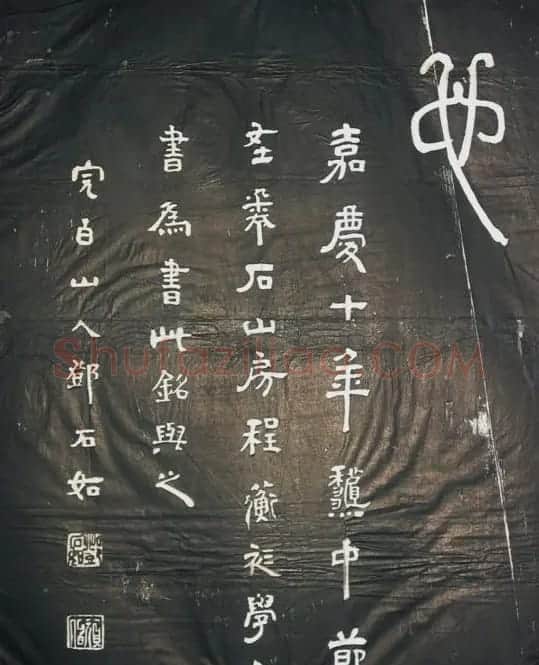 也
嘉慶十年龝中節
石山房程蘅衫學
書為書此銘與之
完白山人鄧石如
ShufaZiliao.COM